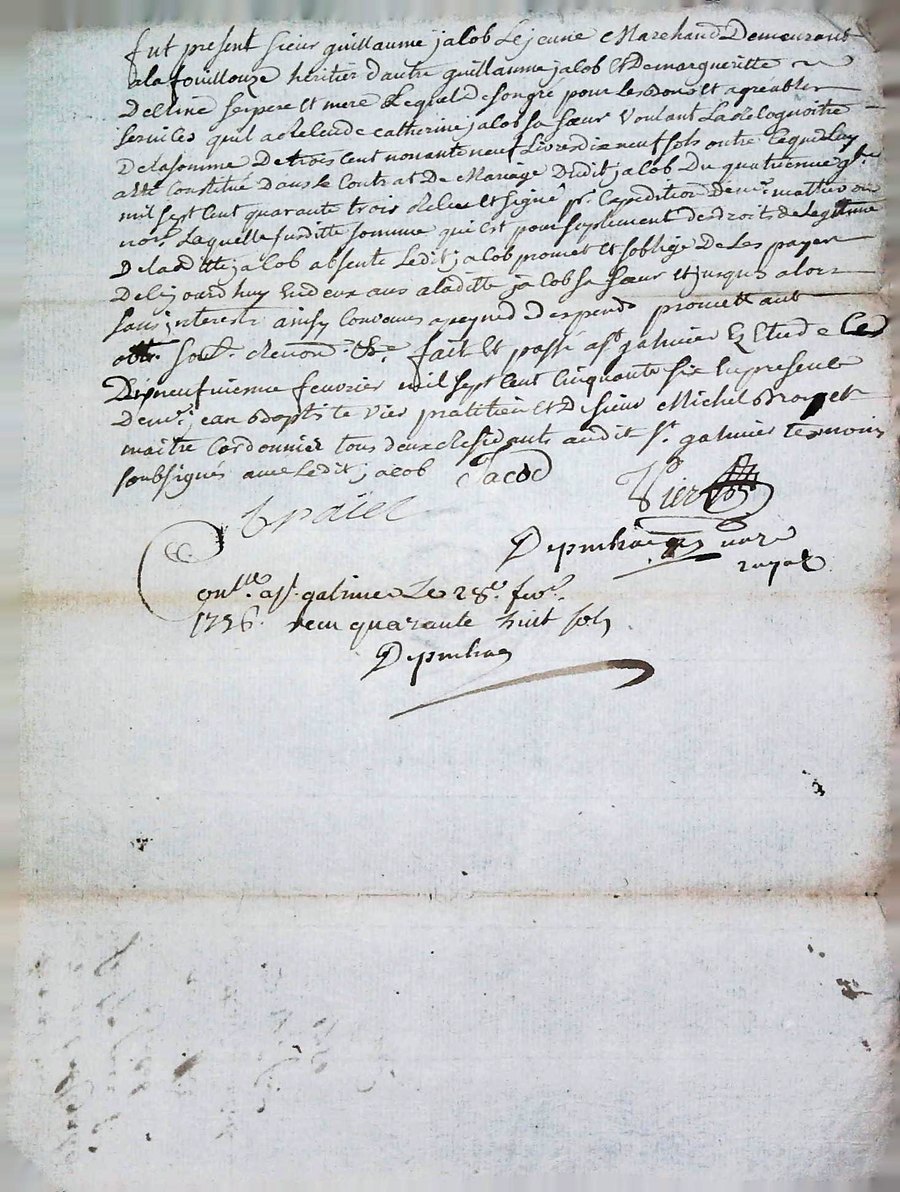 fut present sieur guillaume jacob Lejeune Marchand Demeurant
ala fouillouze héritier d'autre guillaume jacob et Demargueritte
sespere et mere Lequel de songré pour les bons et agréables
services quil a de catherine jacob sa sœur Voulant
Delasomme De trois cent nonante neuf Livres dixneuf sols outre ce
constitué Dans le Contrat De Mariage Dudit jacob Du quatrieme
mil sept cent quarante trois et signé pr. Expedition De mr. mathevon
nore. Laquelle susditte somme qui est pour suplement de droits de Legitime
Deladitte jacob absente Ledit jacob promet et soblige De Les payer
Decejourdhuy en deux ans aladitte jacob sa sœur et jusques alors
sans interests ainsy Convenus apeyne d despends promettant
renon. &c. fait et passé a st. galmier Etude Ce
Dixneufvieme feuvrier mil sept cent cinquante six En presence
De mr. jean baptiste Vier pratitien et D sieur Michel
maitre Cordonnier tous deux Residants audit st. galmier tesmoins
soubsignés avec Ledit jacob Jacod
Vier
nore
royal
Contlé. a st. galmier Le 28e. fevr.
1756. Receu quarante huit sols